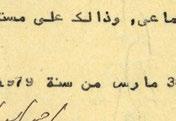 ماعي، وذالك على مستـ
3 مارس من سنة 1979